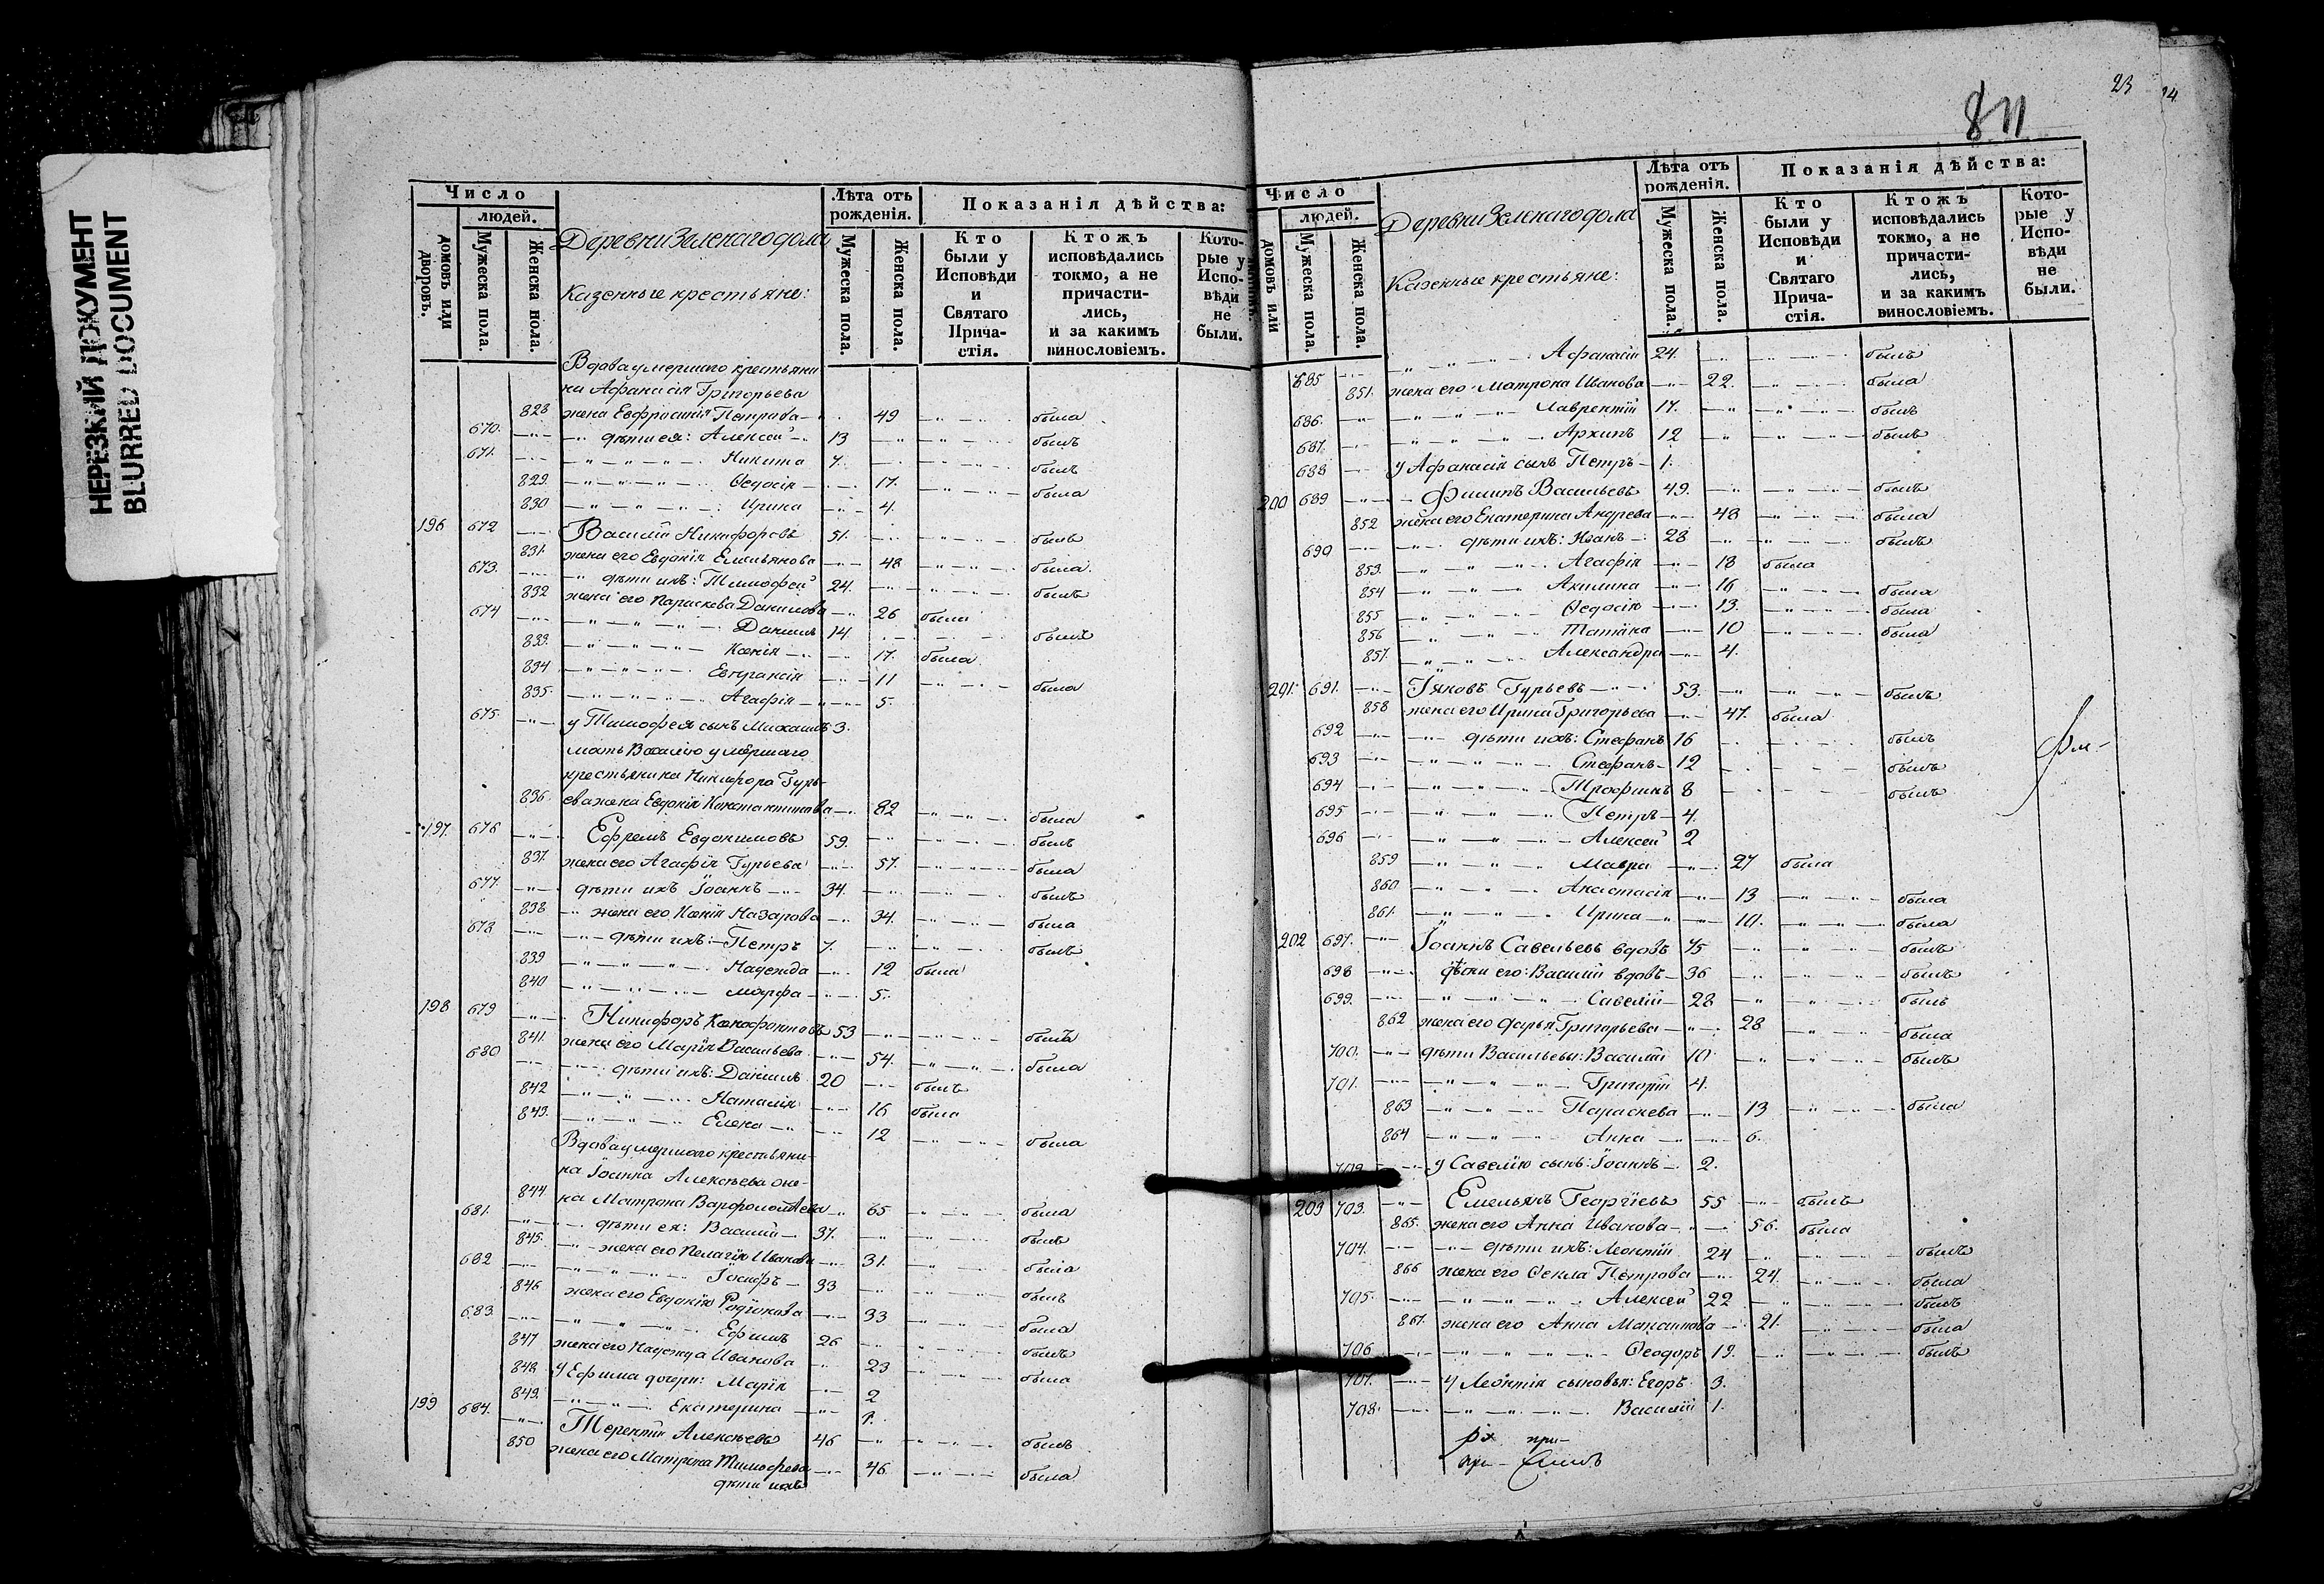 НЕРЕЗКИЙ ДОКУМЕНТ
BLURRED DOCUMENT
Число
людей.
домовъ или дворовъ.
Мужеска пола.
Женска пола.
Деревни Зеленаго дола
Казенные крестьяне:
Лѣта отъ рожденія.
Мужеска пола.
Женска пола.
Показанія дѣйства:
Кто были у Исповѣди и Святаго Прича-стія.
Ктожъ исповѣдались токмо, а не причасти-лись, и за какимъ винословіемъ.
Кото-рые у Испо-вѣди не были.
Вдова умершаго крестьяни
на Афанасія Григорьева
828 жена Евфросинія Петрова 49 была
670. дѣти ея: Алексей 13 былъ
671. Никита 7. былъ
829. Ѳедосія 17. была
830 Ирина 4.
196 672 Василій Никифоровъ 51. былъ
831. жена его Евдокія Емельянова 48 была.
673. дѣти ихъ: Тимофей 24. былъ
832 жена его Параскева Данилова 26 была
674 Даніилъ 14. былъ
833. Ксенія 17. была
834 Евпраксія 11 была
835. Агафія 5.
675. у Тимофея сынъ Михаилъ 3.
мать Василію умершаго
крестьянина Никифора Гурь-
836. ева жена Евдокія Константинова 82 была
197. 676 Ефремъ Евдокимовъ 59. былъ
837. жена его Агафія Гурьева 57. была
677. дѣти ихъ Іоаннъ 34. былъ
838 жена его Ксенія Назарова 34. была
678 дѣти ихъ: Петръ 7. былъ
839 Надежда 12 была
840 Марфа 5.
198 679 Никифоръ Ксенофонтовъ 53 былъ
841. жена его Марія Васильева 54. была
680 дѣти ихъ: Даніилъ 20 былъ
842 Наталія 16 была
843. Елена 12 была
Вдова умершаго крестьяни-
на Іоанна Алексѣева жe-
844. на Матрона Варфоломѣева 65 была
681. дѣти ея: Василій 37. былъ
845. жена его Пелагія Иванова 31. была
682 Іосифъ 33 былъ
846 жена его Евдокія Родіонова 33 была
683. Ефимъ 26 былъ
847 жена его Надежда Иванова 23 была
848 у Ефима дочери: Марія 2
849. Екатерина 1.
199 684. Терентій Алексѣевъ 46 былъ
850 жена его Матрона Тимофеева 46 была
дѣти ихъ
811
23
14
Число
людей.
домовъ или
Мужеска пола.
Женска пола.
Деревни Зеленаго дола
Казенные крестьяне:
Лѣта отъ рожденія.
Мужеска пола.
Женска пола.
Показанія дѣйства:
Кто были у Исповѣди и Святаго Прича-стія.
Ктожъ исповѣдались токмо, а не причасти-лись, и за какимъ винословіемъ.
Кото-рые у Испо-вѣди не были.
685 Афанасій 24. былъ
851. жена его Матрона Иванова 22. была
686. Лаврентій 17. былъ
687. Архипъ 12 былъ
688 у Афанасія сынъ Петръ 1.
200 689 Филипъ Васильевъ 49. былъ
852 жена его Екатерина Андреева 48 была
690 дѣти ихъ: Иоанъ 28 былъ
853. Агафія 18 была
854 Акилина 16 была
855 Ѳедосія 13. была
856 Татіана 10 была
857. Александра 4.
201. 691. Іяковъ Гурьевъ 53. былъ
858 жена его Ирина Григорьева 47. была
692 дѣти ихъ: Стефанъ 16 былъ
693 Стефанъ 12 былъ
694 Трофимъ 8 былъ
695 Петръ 4.
696 Алексей 2
859 Мавра 27 была
860 Анастасія 13 была
861. Ирина 10. была
202 697. Іоаннъ Савельевъ вдовъ 75 былъ
698 дѣти его: Василій вдовъ 36 былъ
699. Савелій 28 былъ
862 жена его Дарья Григорьева 28 была
700. дѣти Васильевы: Василій 10 былъ
701. Григорій 4.
863 Параскева 13 была
864 Анна 6.
702. у Савелію сынъ: Іоаннъ 2.
203 703. Емельянъ Георгіевъ 55 былъ
865. жена его Анна Иванова 56. была
704. дѣти ихъ: Леонтій 24 былъ
866 жена его Ѳекла Петрова 24. была
705. Алексей 22 былъ
867. жена его Анна Максимова 21. была
706. Ѳеодоръ 19. былъ
707. у Леонтія сыновья: Егоръ 3.
708. Василій 1.